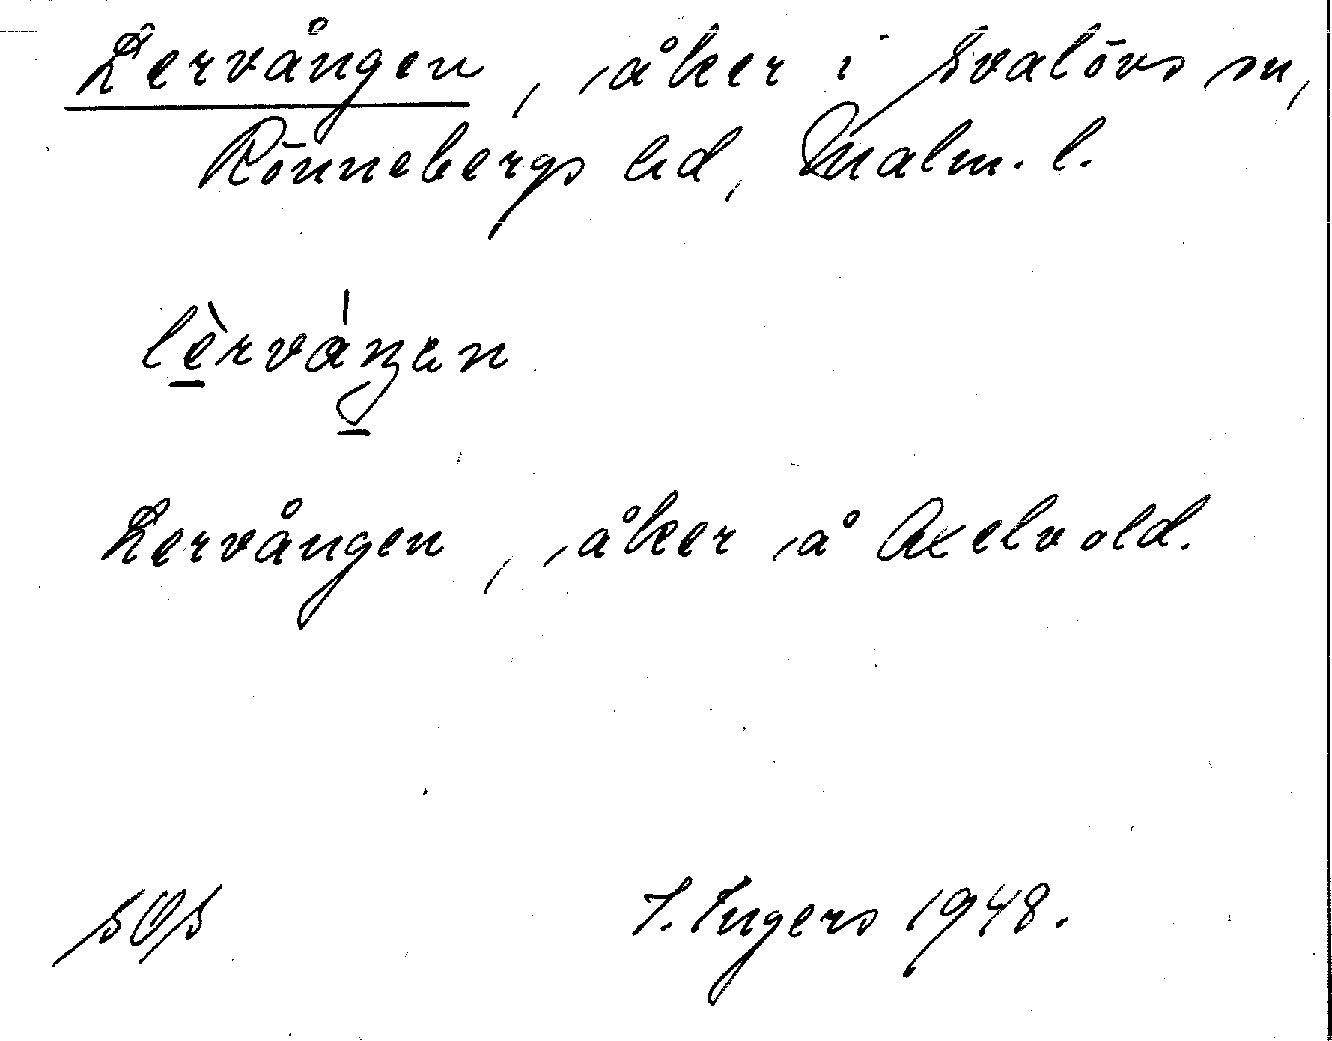 Lervången, åker i Svalövs sn,
Rönnebergs hd, Malm. l.
Lervången, åker å Axelvold.
SOS I. Ingers 1948.